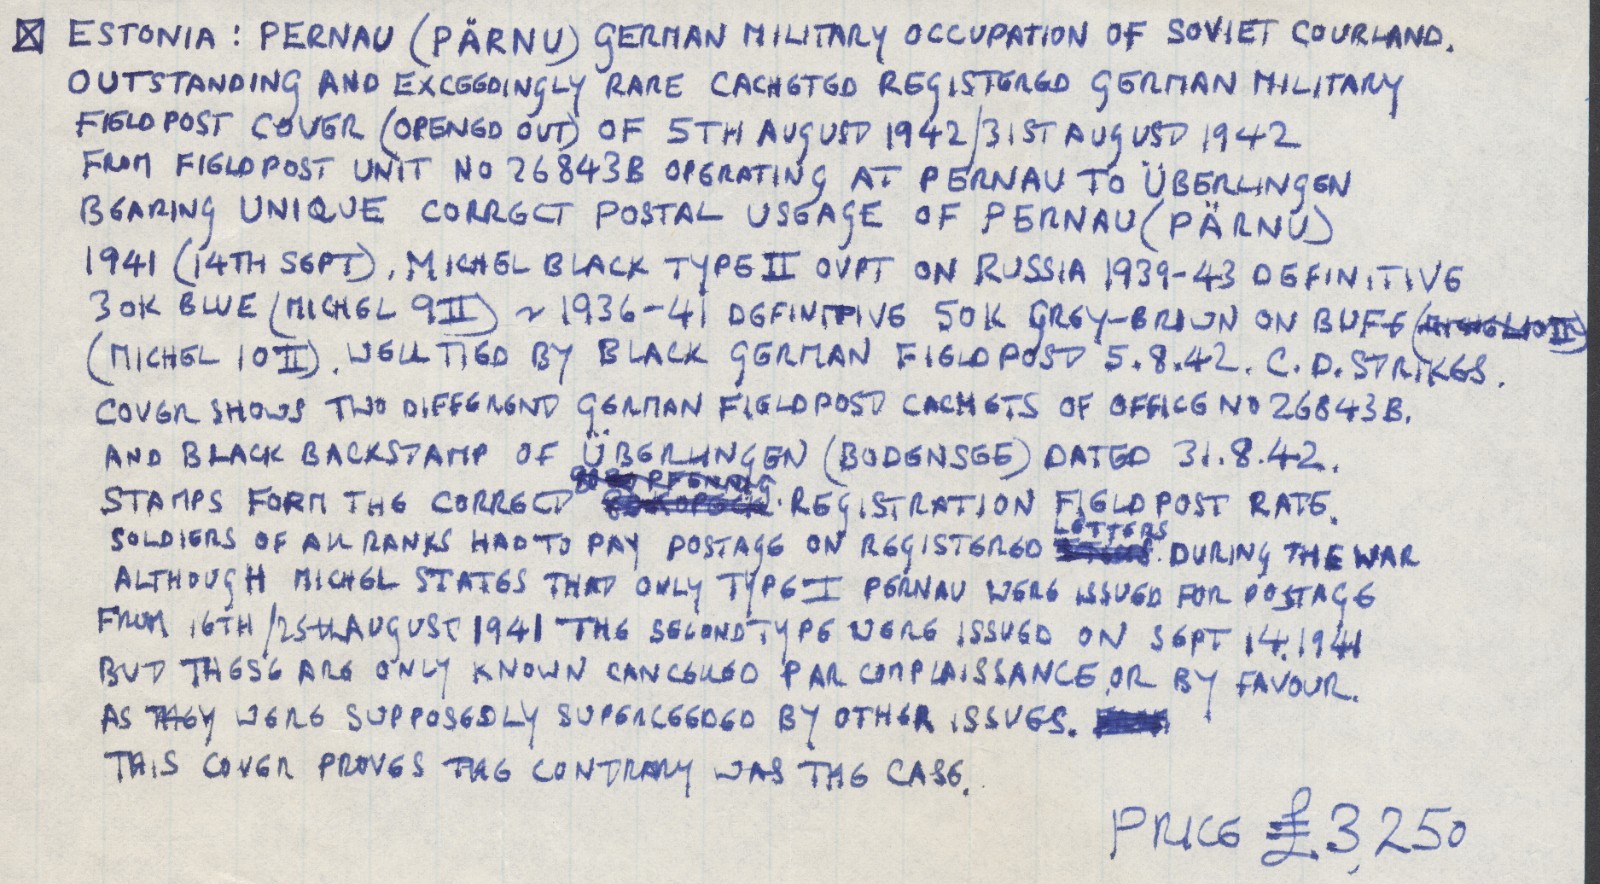 ☒ ESTONIA: PERNAU (PÄRNU) GERMAN MILITARY OCCUPATION OF SOVIET COURLAND.
OUTSTANDING AND EXCEEDINGLY RARE CACHETED REGISTERED GERMAN MILITARY
FIELDPOST COVER (OPENED OUT) OF 5TH AUGUST 1942/31ST AUGUST 1942
FROM FIELDPOST UNIT NO 26843B OPERATING AT PERNAU TO ÜBERLINGEN
BEARING UNIQUE CORRECT POSTAL USEAGE OF PERNAU (PÄRNU)
1941 (14TH SEPT), MICHEL BLACK TYPE II OVPT ON RUSSIA 1939-43 DEFINITIVE
30K BLUE (MICHEL 9II) ~ 1936-41 DEFINITIVE 50K GREY-BROWN ON BUFF (MICHEL 10II)
(MICHEL 10II). WELL TIED BY BLACK GERMAN FIELDPOST 5.8.42. C.D. STRIKES.
COVER SHOWS TWO DIFFERENT GERMAN FIELDPOST CACHETS OF OFFICE NO 26843B.
AND BLACK BACKSTAMP OF ÜBERLINGEN (BODENSEE) DATED 31.8.42.
PFENNIG
STAMPS FORM THE CORRECT REGISTRATION FIELDPOST RATE.
LETTERS
SOLDIERS OF ALL RANKS HAD TO PAY POSTAGE ON REGISTERED DURING THE WAR
ALTHOUGH MICHEL STATES THAT ONLY TYPE I PERNAU WERE ISSUED FOR POSTAGE
FROM 16TH/25TH AUGUST 1941 THE SECOND TYPE WERE ISSUED ON SEPT 14.1941
BUT THESE ARE ONLY KNOWN CANCELLED PAR COMPLAISSANCE, OR BY FAVOUR.
AS THEY WERE SUPPOSEDLY SUPERCEEDED BY OTHER ISSUES.
THIS COVER PROVES THE CONTRARY WAS THE CASE.
PRICE £3,250